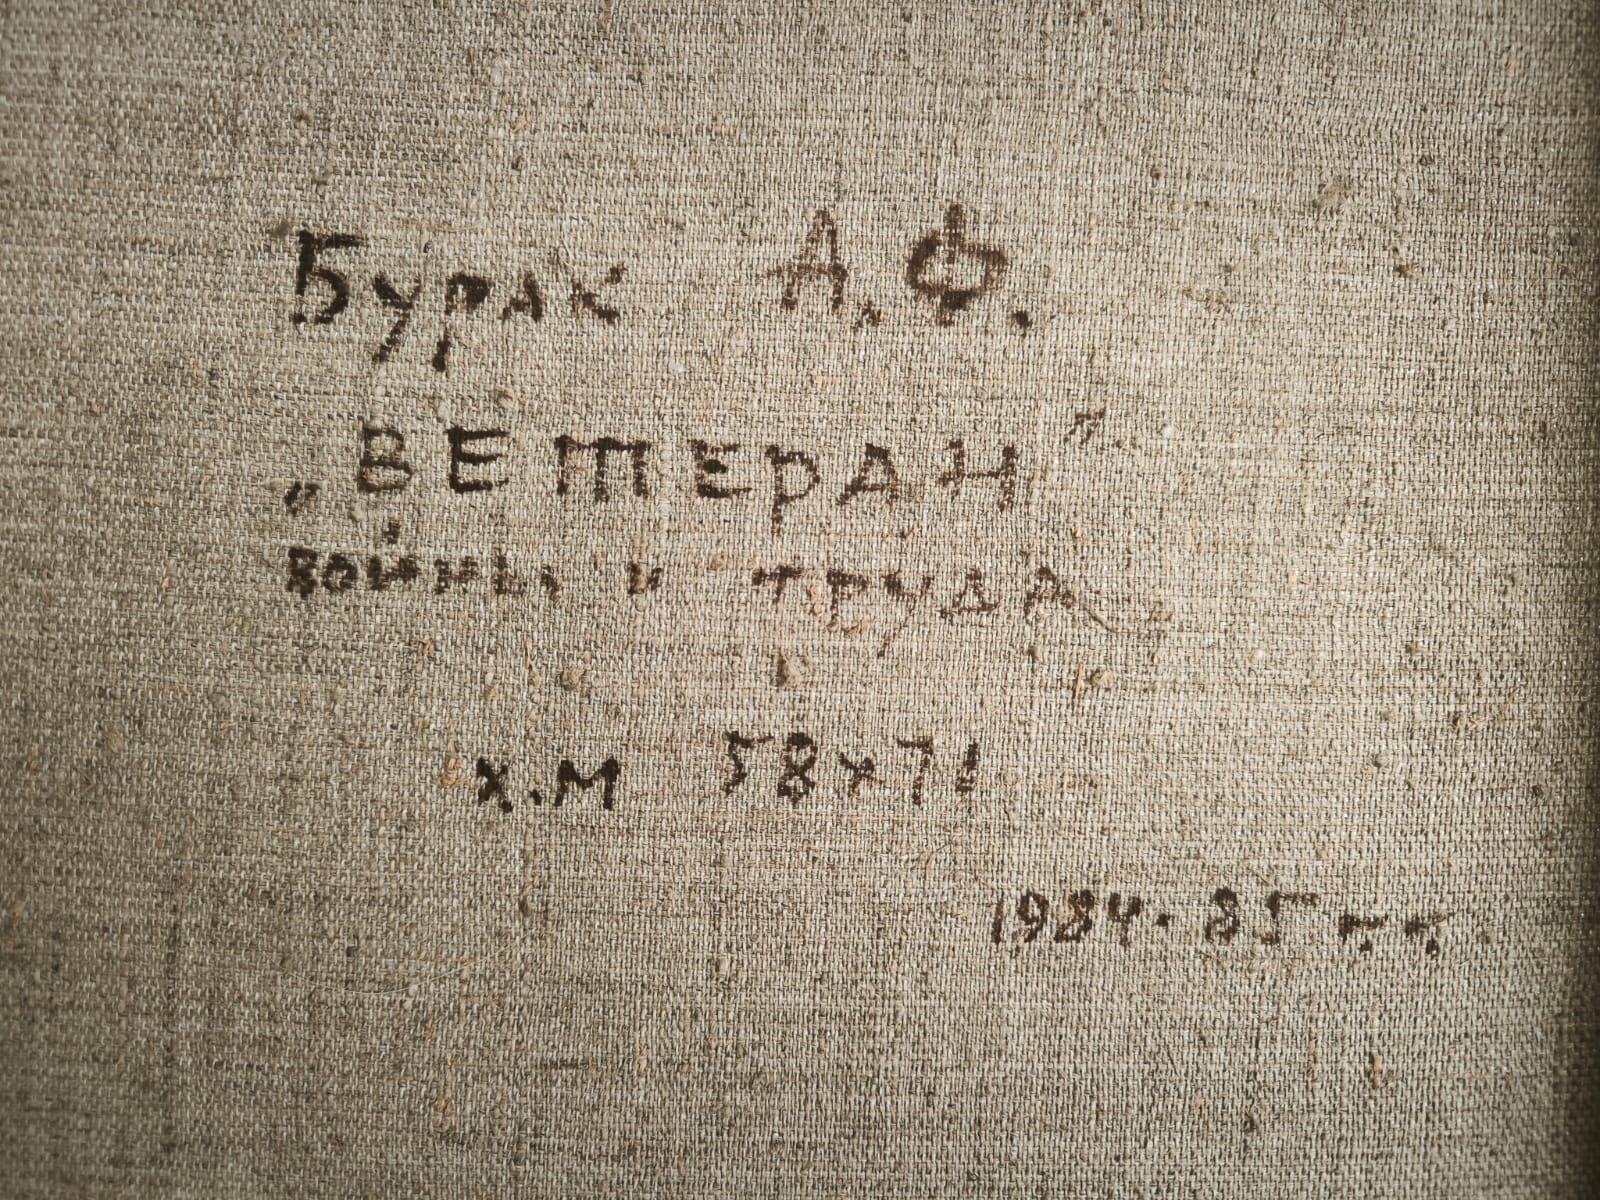 Бурак А.Ф.
„ВЕТЕРАН"
войны и труда
х.м 58х71
1984-85 гг.